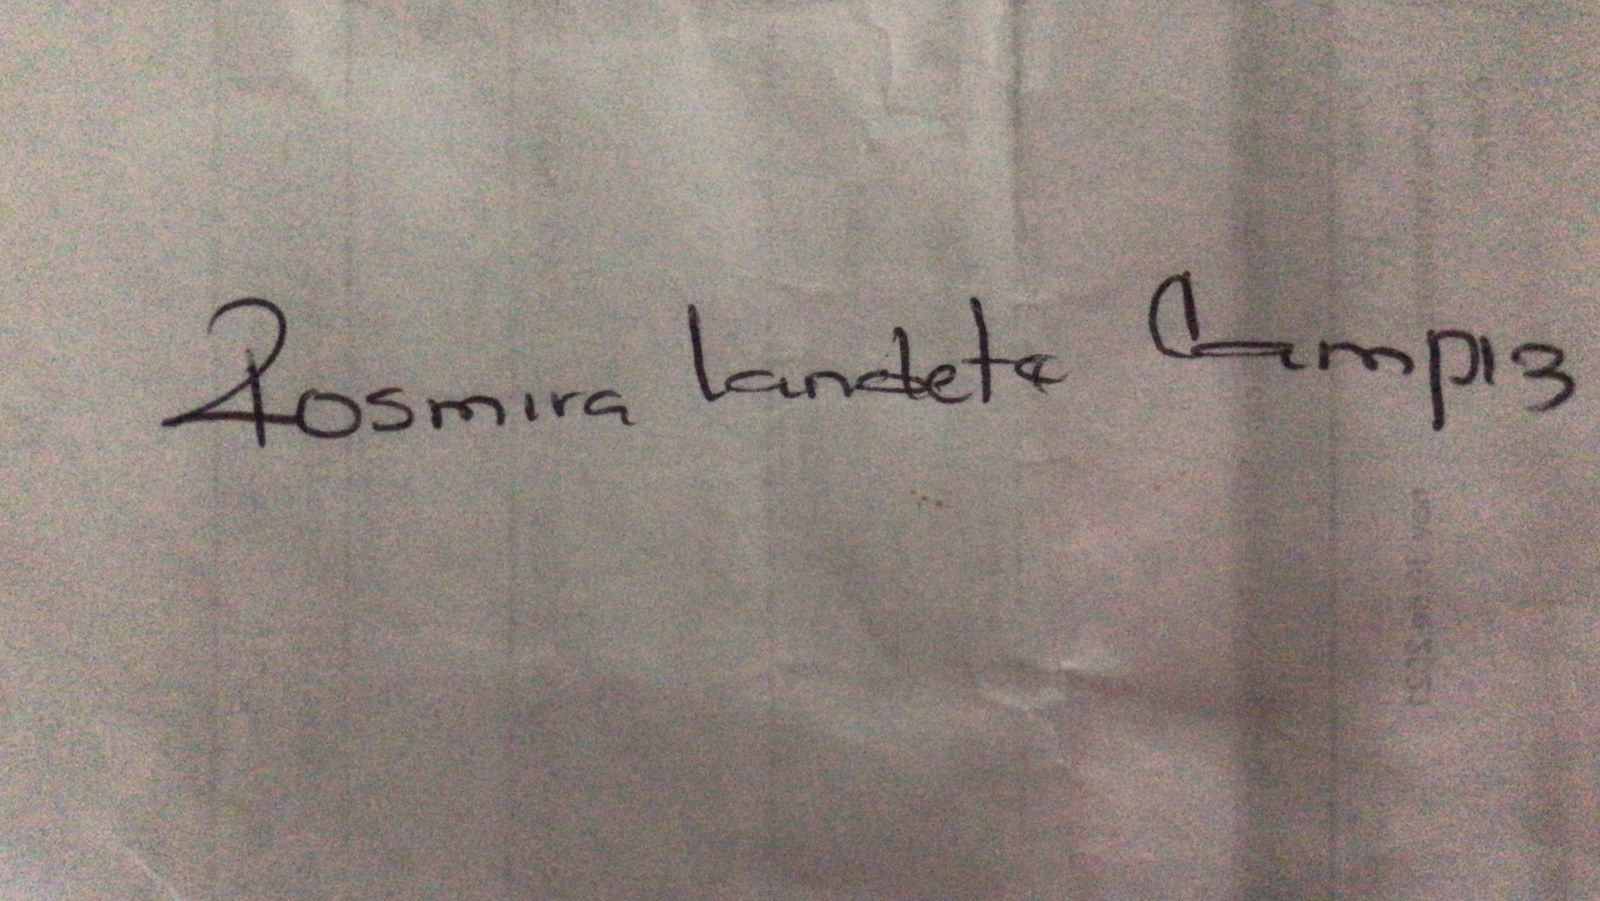 Rosmira Landeta Campiz